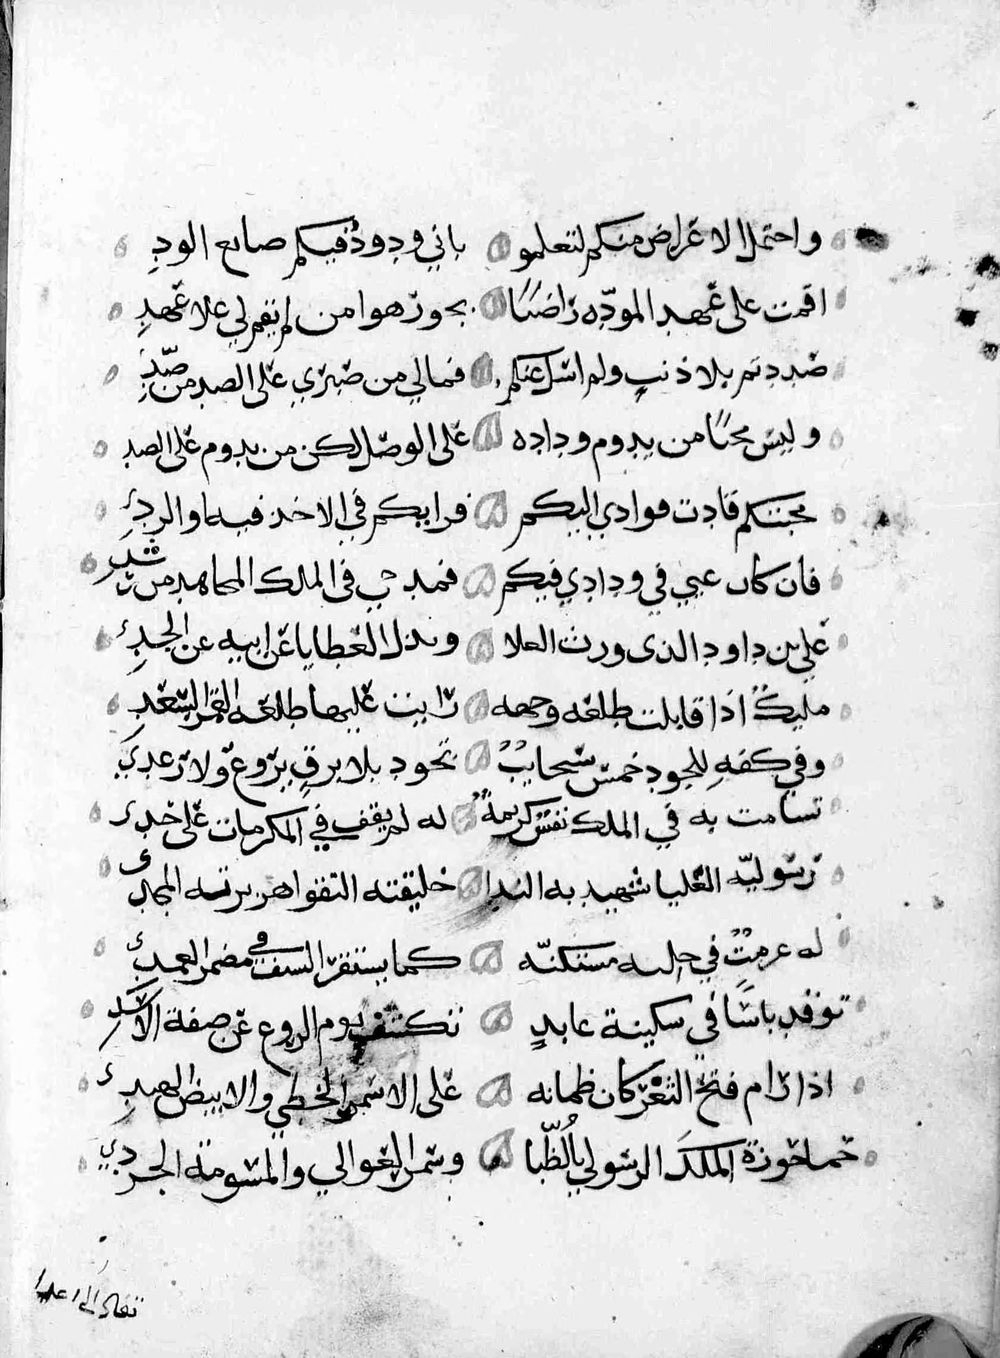 واحتمل الاعراض منكم لتعلمو باني ودودٌ فيكم صايع الودِ
اقمت على عهد المودّه راضيًا بجور هوا من لم يقم لي علا عهدِ
صددتم بلا ذنبٍ ولم اسل عنكم فمالي من صبري على الصد من صدِّ
وليس محبًا من يدوم وداده على الوصل لكن من يدوم على الصد
محبتكم قادت فوادي اليكم فرايكم في الاخذ فيه او الردِي
فان كان عيبي في ودادي فيكم فمدحي في الملك المجاهد من رشد
علي بن داود الذى ورث العلا وبذل العطايا عن ابيه عن الجدِي
مليكٌ اذا قابلت طلعه وجهه رايت عليها طلعه القمر السعدِ
وفي كفهِ للجود خمس سحايبٌ تجود بلا برقٍ يروع ولا رعدِي
تسامت به في الملك نفسٌ كريمةٌ له لم يقف في المكرمات على حدي
رسوليّه العليا شهيد به الندا خليقته التقوا هزبرته المجدى
له عزمتٌ في حلمه مستكنّه كما يستقر السيف في مضمر الغمدِي
توقد باسًا في سكينة عابدٍ تكشف يوم الروع عن صفة الاسد
اذا رام فتح الثغر كان ظمانه على الاسمر الخطي والابيض الهندي
حما حوزة الملك الرسولي بالُظّبا وسمر العوالي والمسومة الجردي